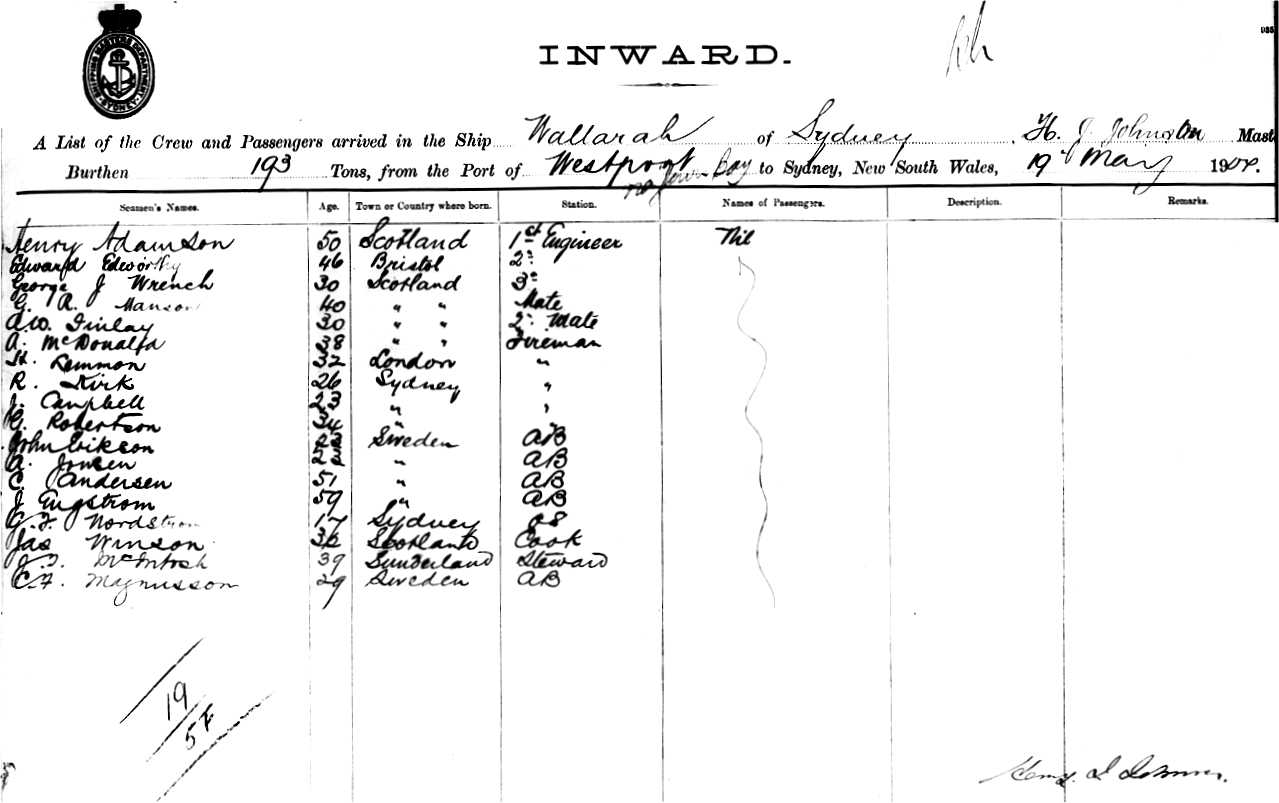 SHIPPING MASTERS DEPARTMENT. SYDNEY
INWARD.
A List of the Crew and Passengers arrived in the Ship Wallarah of Sydney H. J. Johnston Mast
Burthen 193 Tons, from the Port of Westport Bay to Sydney, New South Wales, 19 May 190
Seamen's Names. Age. Town or Country where born. Station. Names of Passengers. Description. Remarks.
Henry Adamson 50 Scotland 1st Engineer Nil
Edward Edworthy 46 Bristol 2n
George J Wrench 30 Scotland 3
G. R. Manson 40 " " Mate
A.W. Finlay 30 " " 2n Mate
A. McDonald 38 " " Fireman
H. Lemmon 32 London "
R. Kirk 26 Sydney "
J. Campbell 23 " "
G. Robertson 34 "
John Erikson Sweden AB
A. Jonsen " AB
C. Andersen 51 " AB
J Engstrom 59 " AB
G.F. Nordstrom 17 Sydney OS
Jas Winson Scotland Cook
J.F. McIntosh 39 Sunderland Steward
C.F. Magnusson 29 Sweden AB
19/5